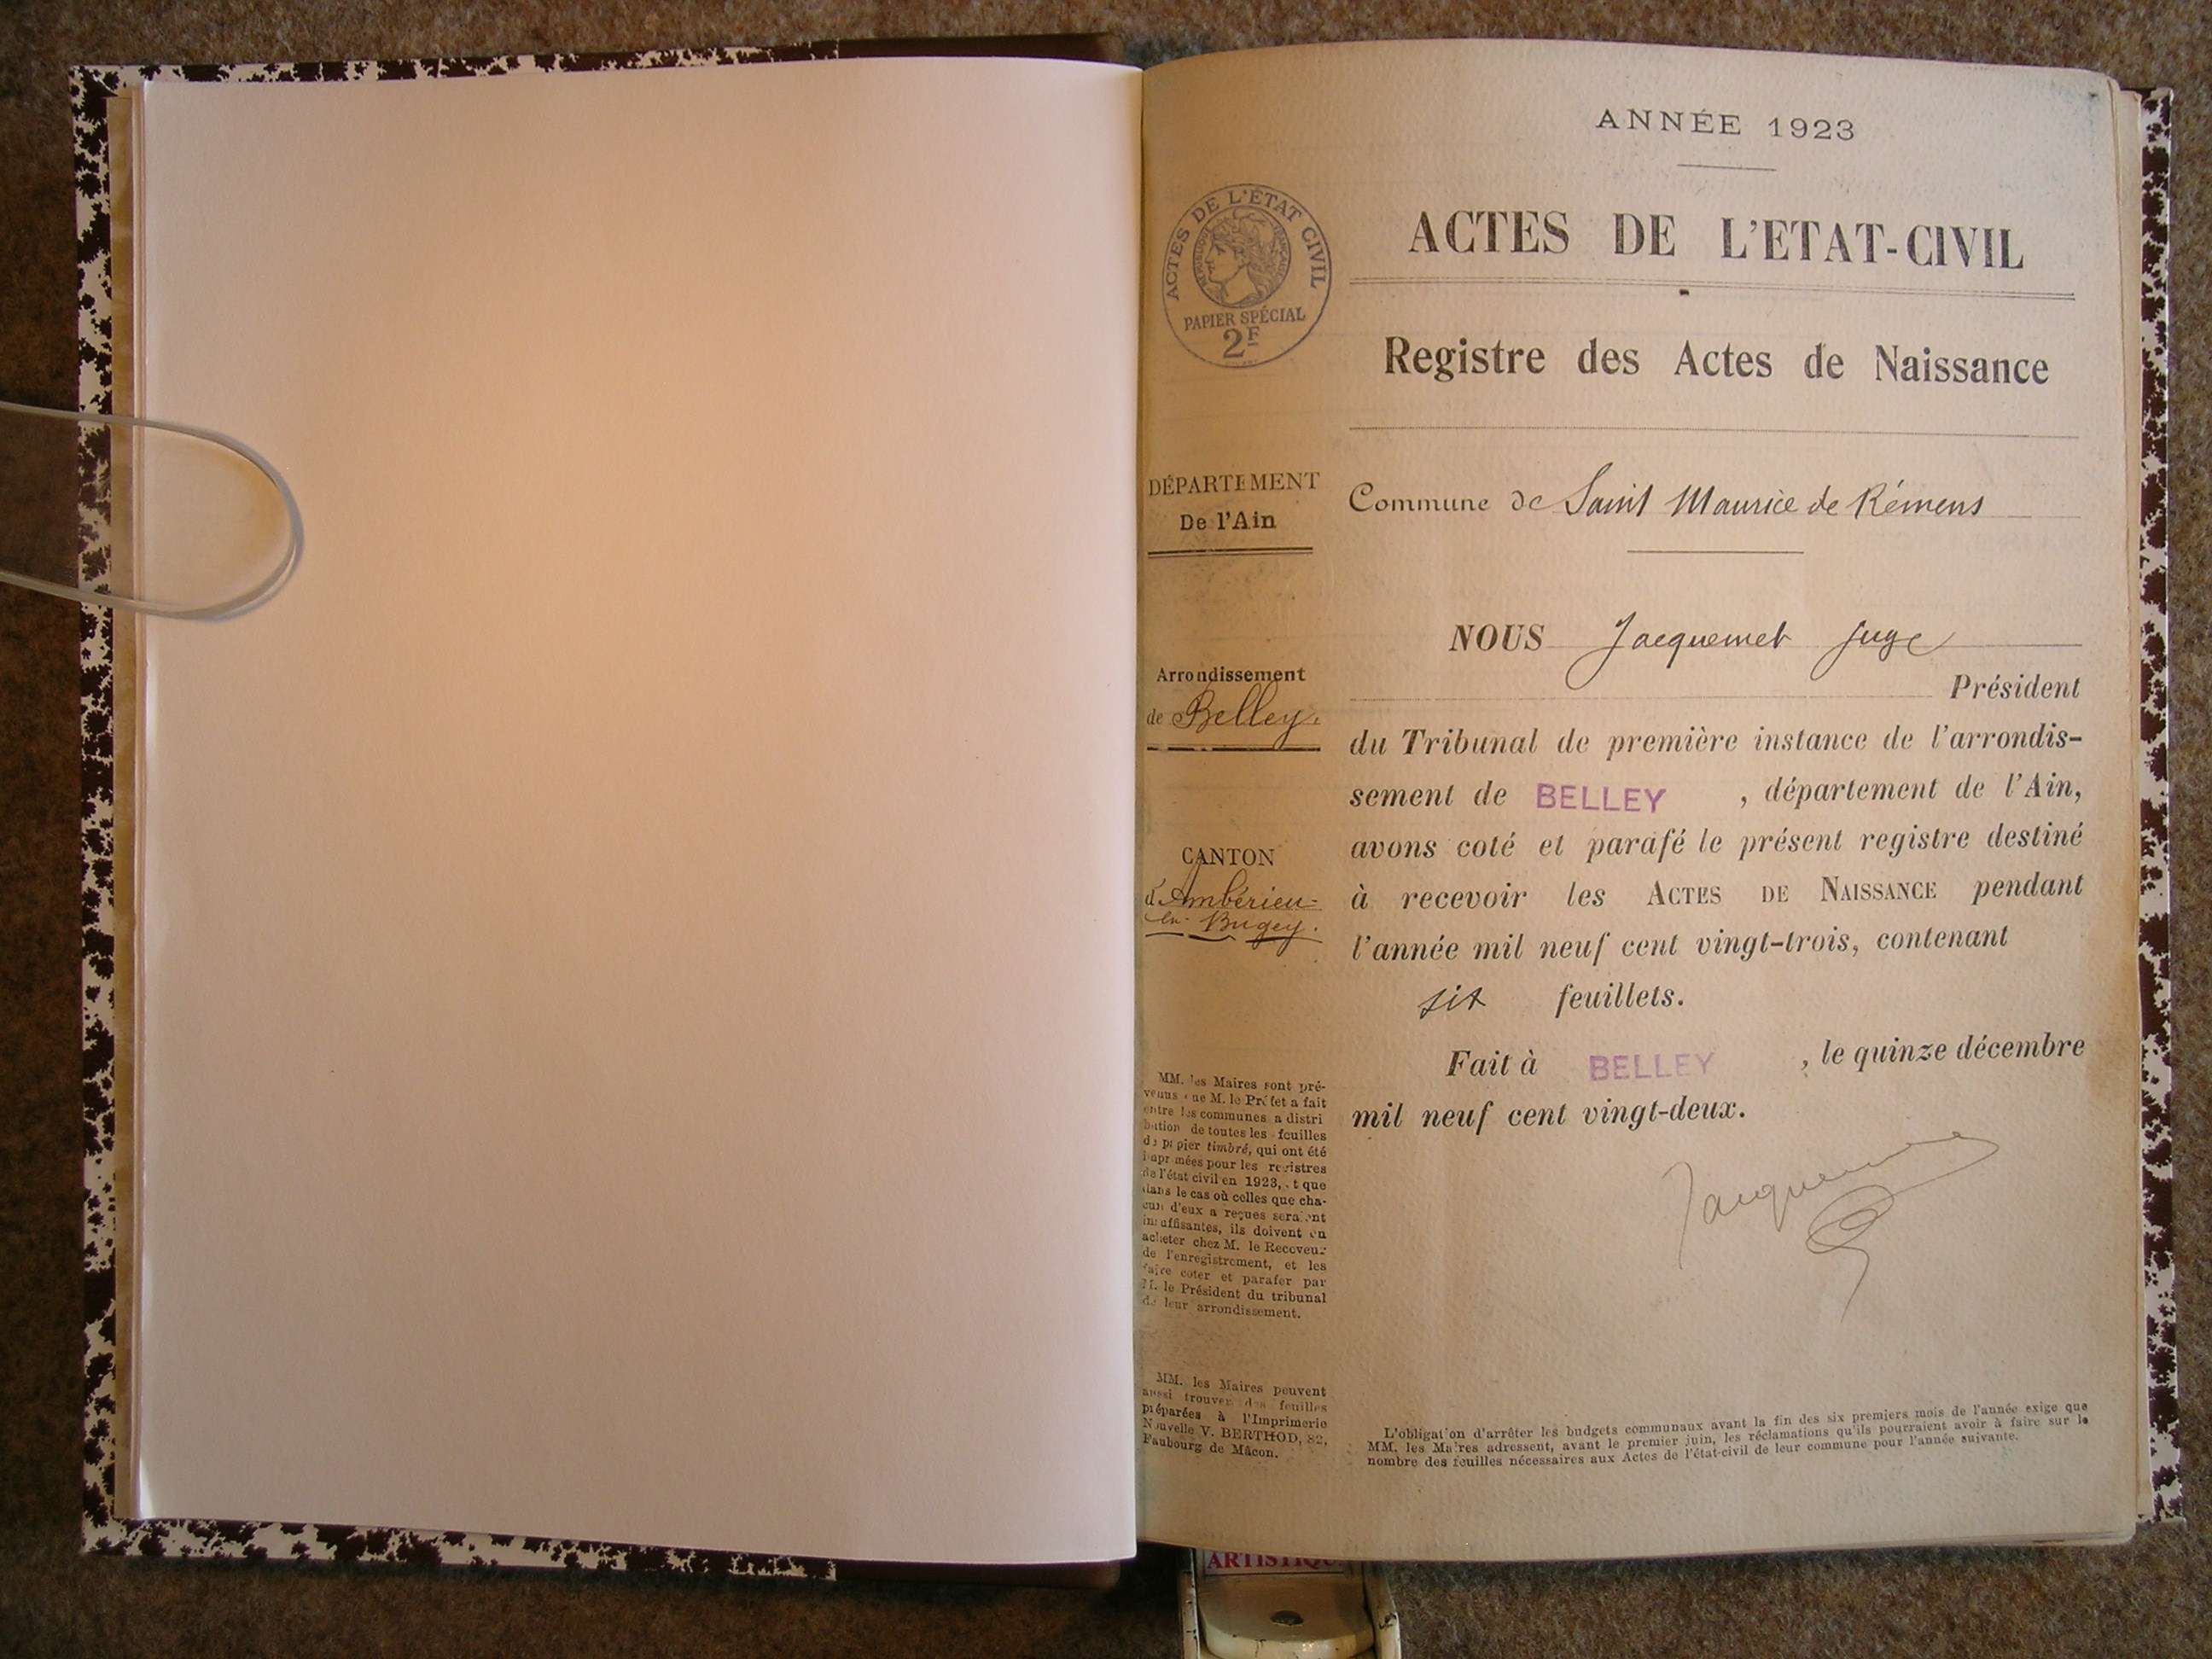 ANNÉE 1923
ACTES DE L'ÉTAT CIVIL
RÉPUBLIQUE FRANÇAISE
PAPIER SPÉCIAL
2F
ACTES DE L'ETAT-CIVIL
Registre des Actes de Naissance
DÉPARTEMENT
De l'Ain
Commune de Saint Maurice de Rémens
Arrondissement
de Belley.
CANTON
d'Ambérieu-
en-Bugey.
NOUS Jacquemet juge
Président
du Tribunal de première instance de l'arrondis-
sement de BELLEY , département de l'Ain,
avons coté et parafé le présent registre destiné
à recevoir les ACTES DE NAISSANCE pendant
l'année mil neuf cent vingt-trois, contenant
six feuillets.
Fait à BELLEY , le quinze décembre
mil neuf cent vingt-deux.
Jacquemet
MM. les Maires sont pré-
venus que M. le Préfet a fait
entre les communes a distri
bution de toutes les feuilles
de papier timbré, qui ont été
imprimées pour les registres
de l'état civil en 1923, et que
dans le cas où celles que cha-
cun d'eux a reçues seraient
insuffisantes, ils doivent en
acheter chez M. le Receveur
de l'enregistrement, et les
faire coter et parafer par
M. le Président du tribunal
de leur arrondissement.
MM. les Maires peuvent
aussi trouver des feuilles
préparées à l'Imprimerie
Nouvelle V. BERTHOD, 82,
Faubourg de Mâcon.
L'obligation d'arrêter les budgets communaux avant la fin des six premiers mois de l'année exige que
MM. les Maires adressent, avant le premier juin, les réclamations qu'ils pourraient avoir à faire sur le
nombre des feuilles nécessaires aux Actes de l'état-civil de leur commune pour l'année suivante.